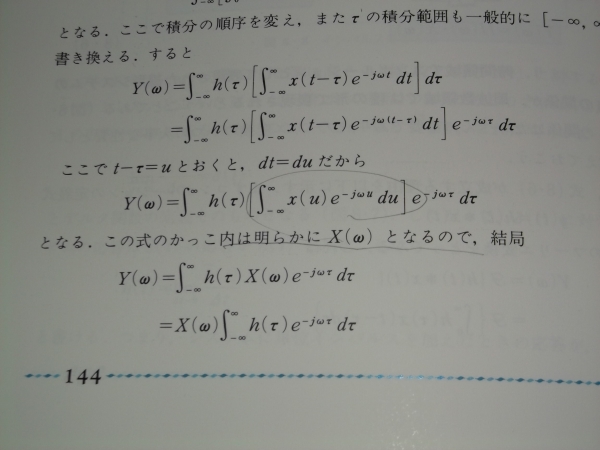 となる．ここで積分の順序を変え，また τ の積分範囲も一般的に [−∞, ∞
書き換える．すると
Y(ω)=∫_{-∞}^{∞} h(τ)[∫_{-∞}^{∞} x(t−τ)e^{−jωt} dt] dτ
=∫_{-∞}^{∞} h(τ)[∫_{-∞}^{∞} x(t−τ)e^{−jω(t−τ)} dt] e^{−jωτ} dτ
ここで t−τ=u とおくと，dt=du だから
Y(ω)=∫_{-∞}^{∞} h(τ)[∫_{-∞}^{∞} x(u)e^{−jωu} du] e^{−jωτ} dτ
となる．この式のかっこ内は明らかに X(ω) となるので，結局
Y(ω)=∫_{-∞}^{∞} h(τ)X(ω)e^{−jωτ} dτ
=X(ω)∫_{-∞}^{∞} h(τ)e^{−jωτ} dτ
144